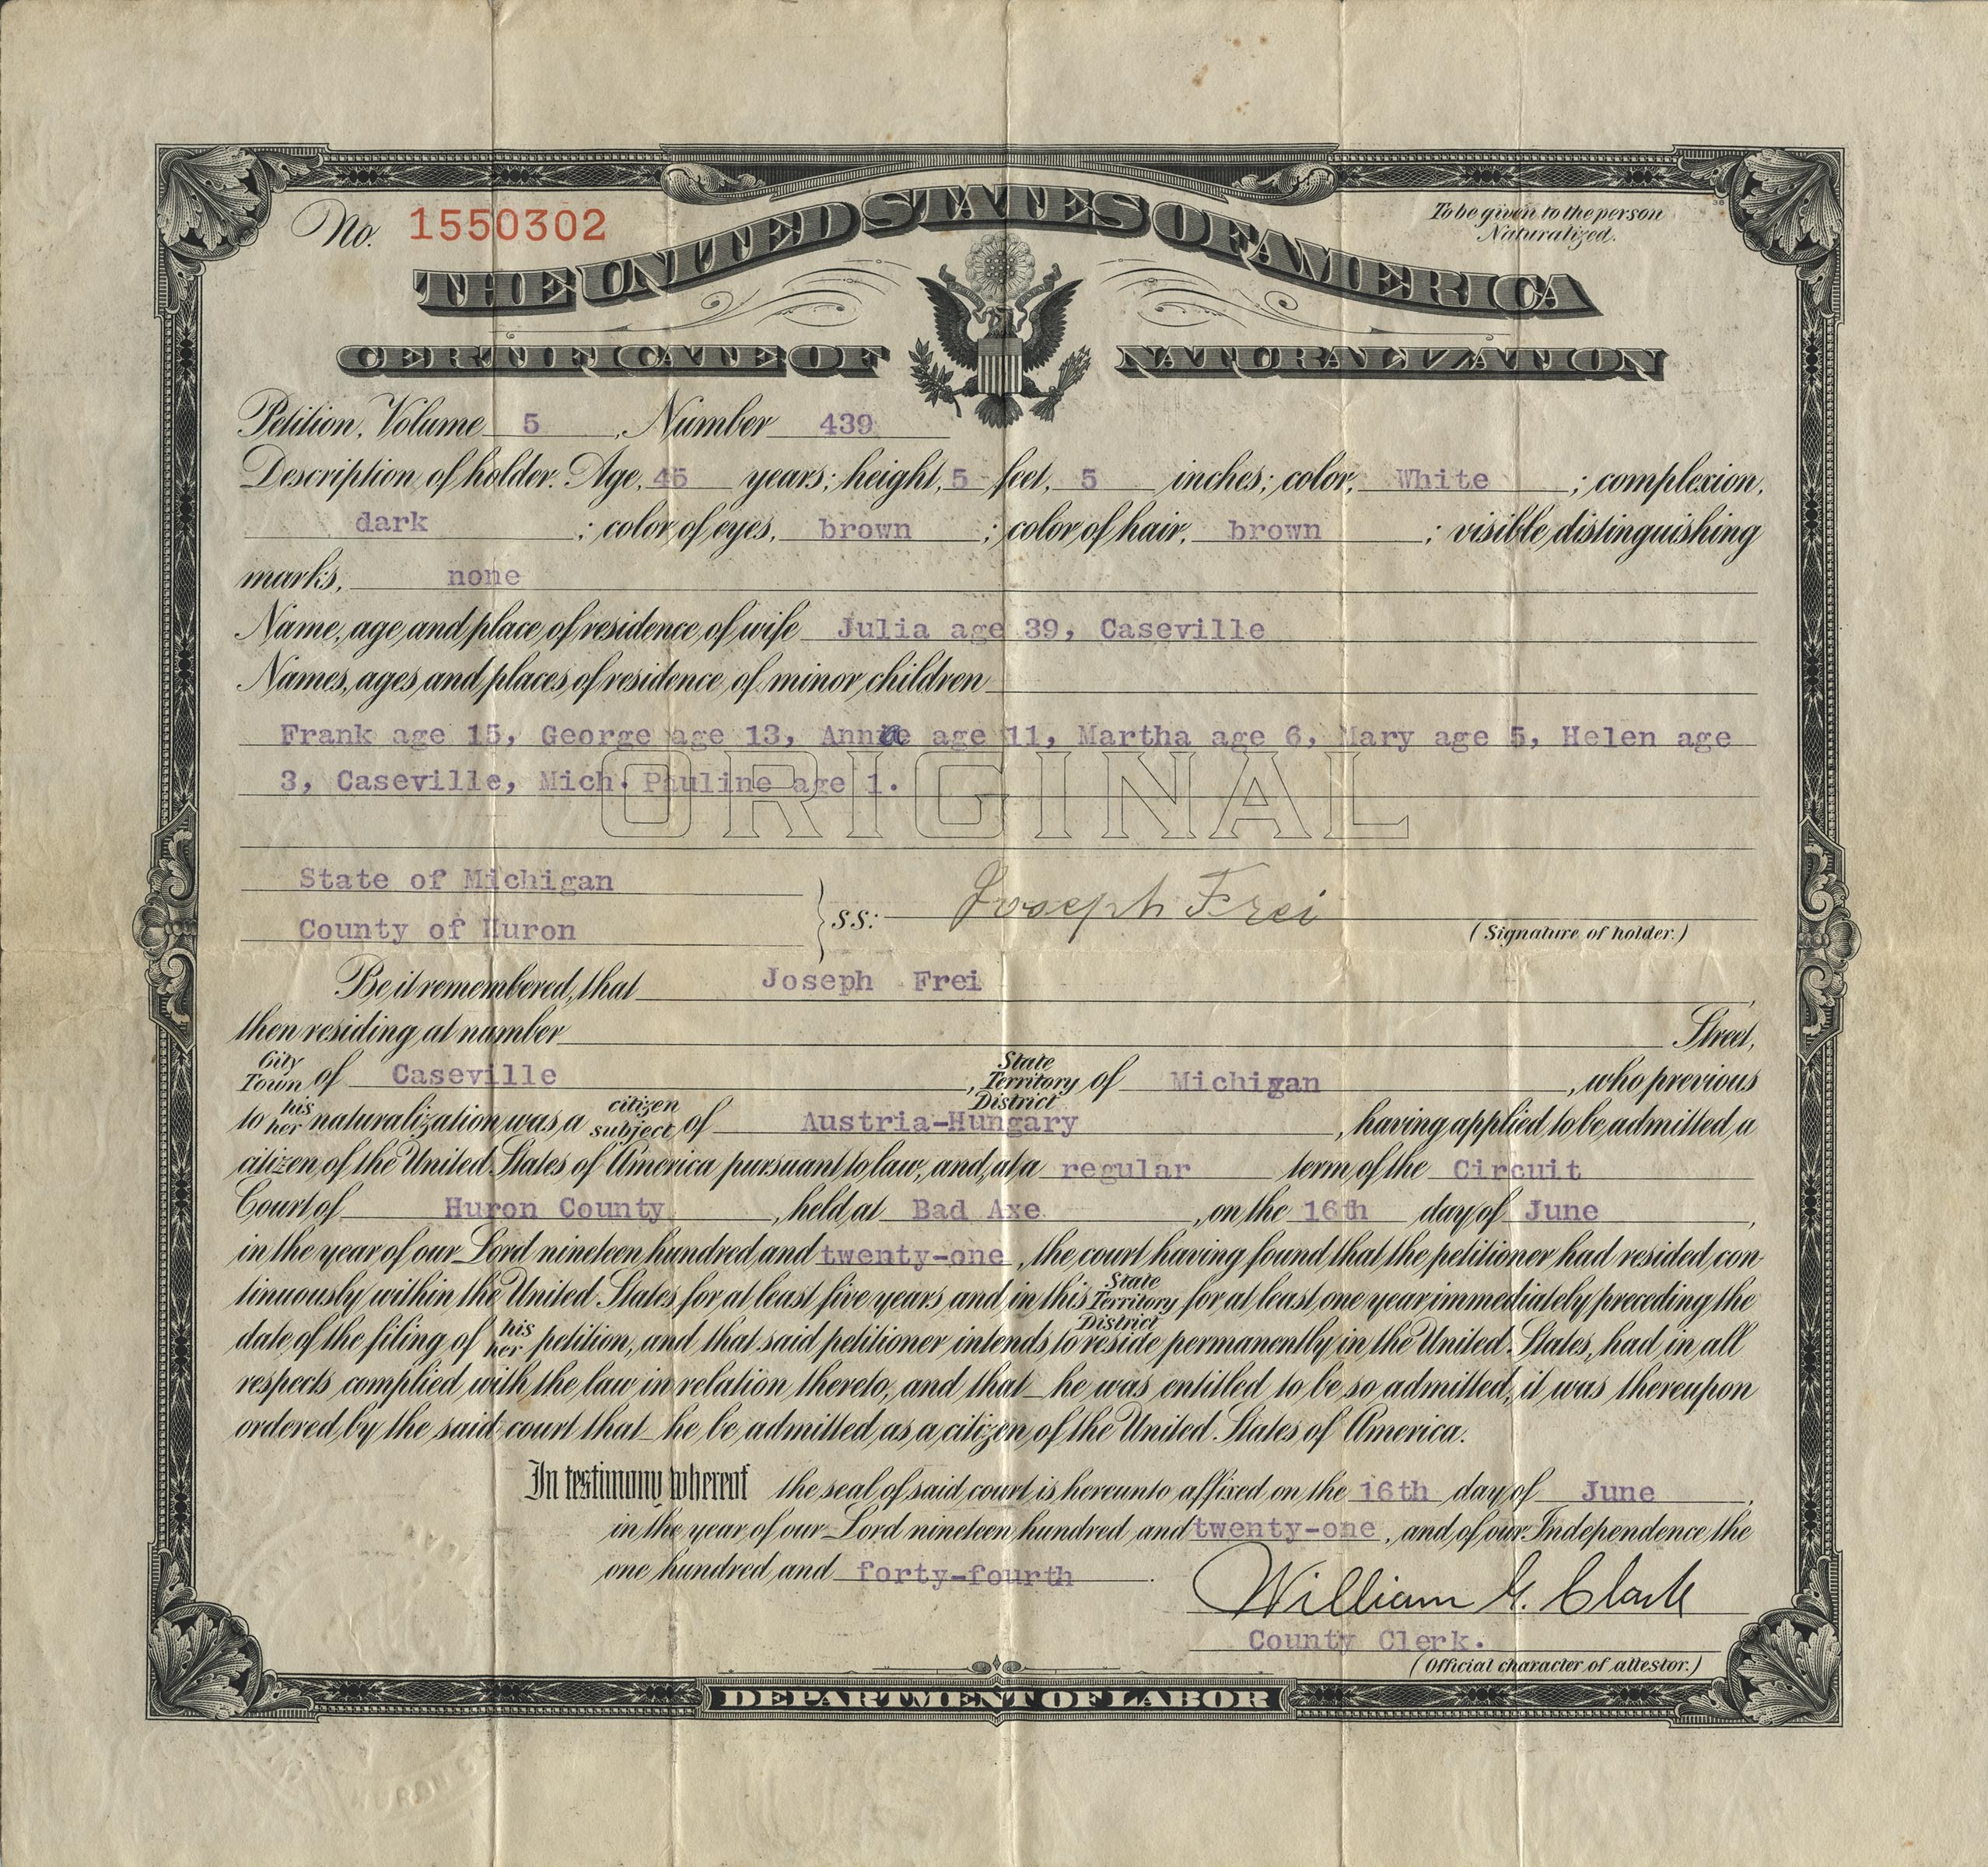 No. 1550302
To be given to the person
Naturalized.
THE UNITED STATES OF AMERICA
CERTIFICATE OF NATURALIZATION
Petition, Volume 5, Number 439
Description of holder. Age, 45 years; height, 5 feet, 5 inches; color, White; complexion,
dark; color of eyes, brown; color of hair, brown; visible distinguishing
marks, none
Name, age and place of residence of wife Julia age 39, Caseville
Names, ages and places of residence of minor children
Frank age 15, George age 13, Anna age 11, Martha age 6, Mary age 5, Helen age
3, Caseville, Mich. Pauline age 1.
ORIGINAL
State of Michigan
County of Huron
ss: Joseph Frei
(Signature of holder.)
Be it remembered, that Joseph Frei,
then residing at number Street,
City Town of Caseville, State Territory District of Michigan, who previous
to his her naturalization was a citizen subject of Austria-Hungary, having applied to be admitted a
citizen of the United States of America pursuant to law, and, at a regular term of the Circuit
Court of Huron County, held at Bad Axe, on the 16th day of June,
in the year of our Lord nineteen hundred and twenty-one, the court having found that the petitioner had resided con-
tinuously within the United States for at least five years and in this State Territory District for at least one year immediately preceding the
date of the filing of his her petition, and that said petitioner intends to reside permanently in the United States, had in all
respects complied with the law in relation thereto, and that he was entitled to be so admitted, it was thereupon
ordered by the said court that he be admitted as a citizen of the United States of America.
In testimony whereof the seal of said court is hereunto affixed on the 16th day of June,
in the year of our Lord nineteen hundred and twenty-one, and of our Independence the
one hundred and forty-fourth.
William G. Clark
County Clerk.
(Official character of attestor.)
DEPARTMENT OF LABOR